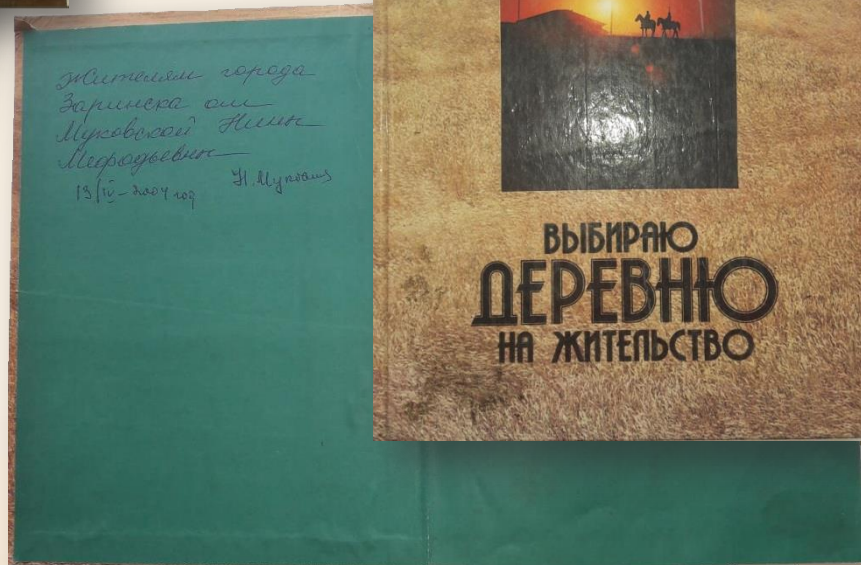 Жителям города
Заринска от
Муковской Нины
Мефодьевны
13/IV-2004 год
ВЫБИРАЮ
ДЕРЕВНЮ
НА ЖИТЕЛЬСТВО